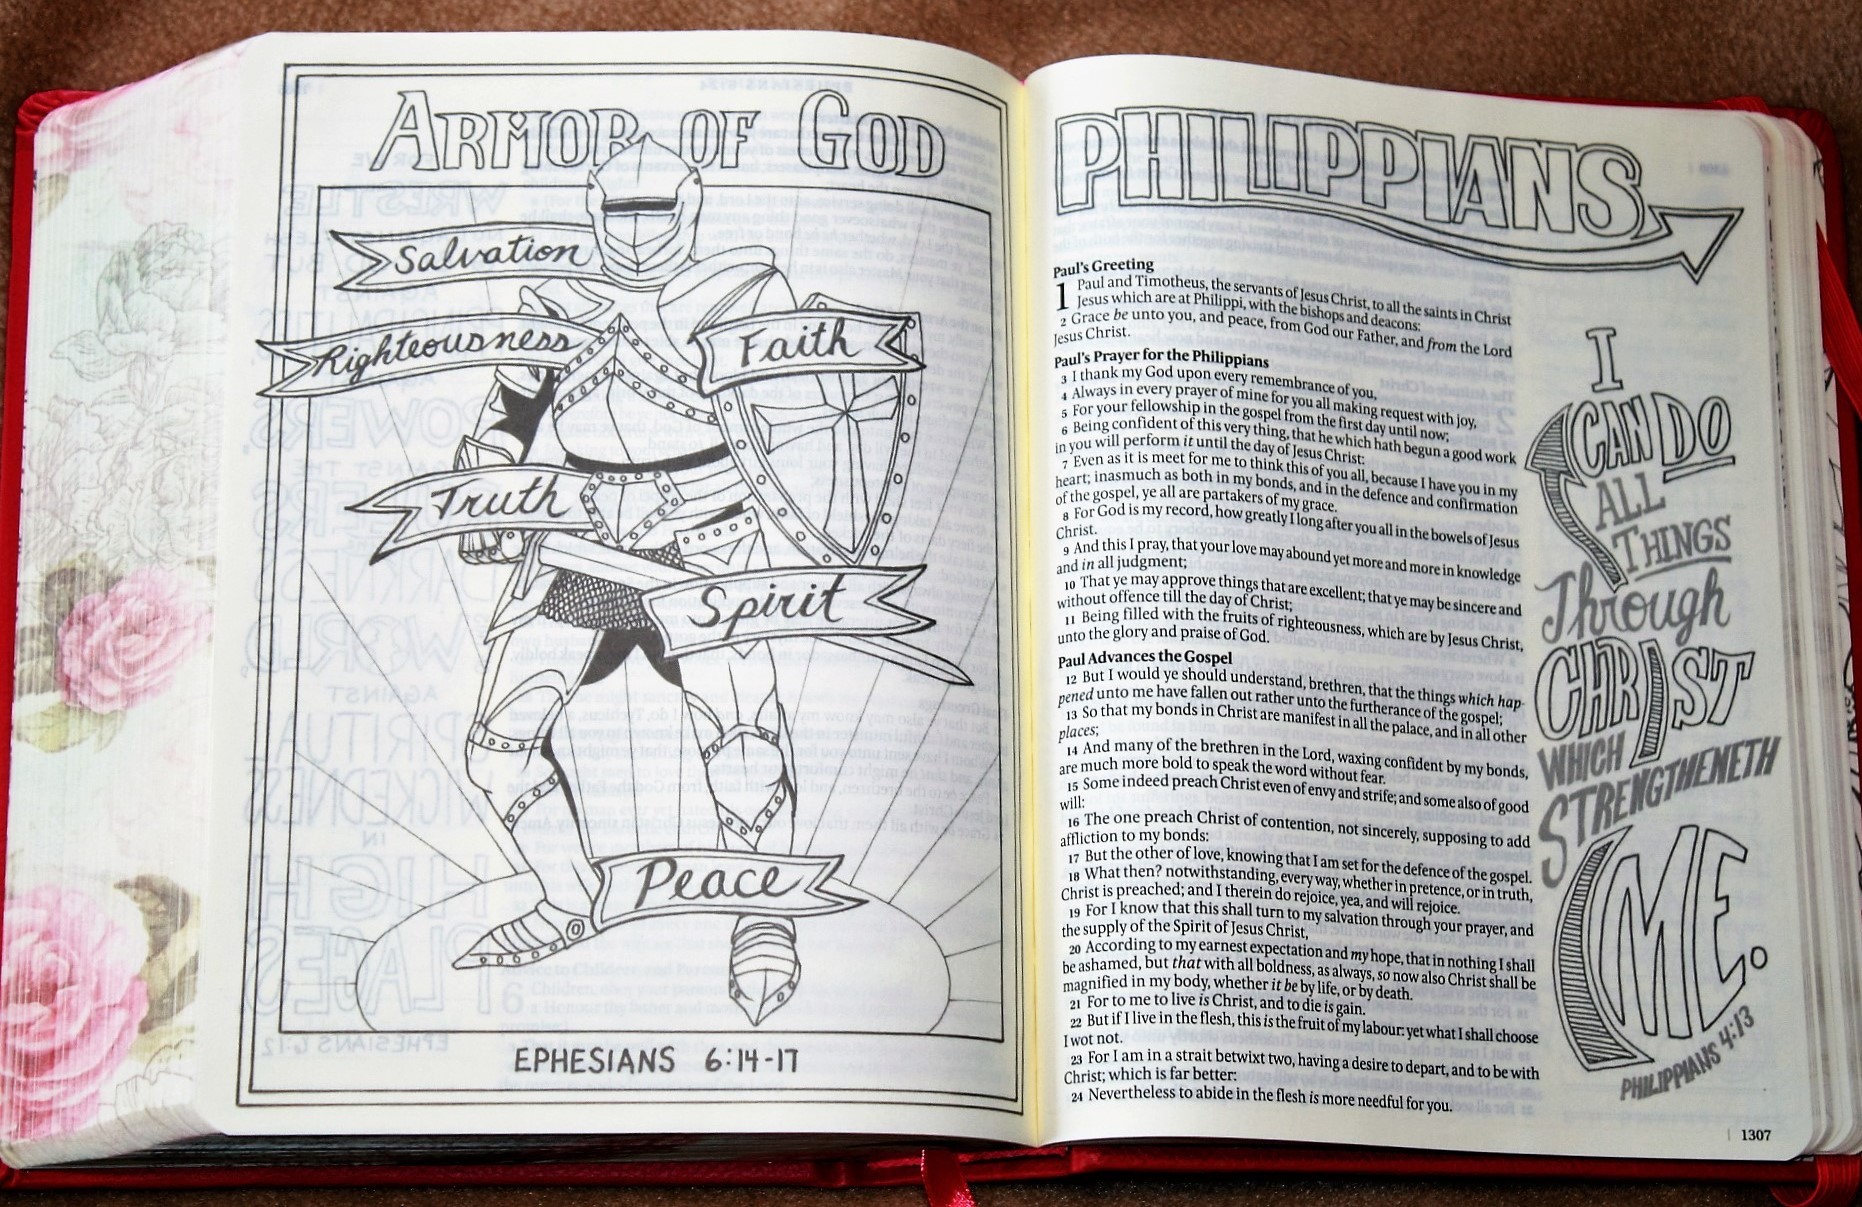 ARMOR OF GOD
Salvation
Righteousness
Faith
Truth
Spirit
Peace
EPHESIANS 6:14-17
PHILIPPIANS
Paul's Greeting
1 Paul and Timotheus, the servants of Jesus Christ, to all the saints in Christ
Jesus which are at Philippi, with the bishops and deacons:
2 Grace be unto you, and peace, from God our Father, and from the Lord
Jesus Christ.
Paul's Prayer for the Philippians
3 I thank my God upon every remembrance of you,
4 Always in every prayer of mine for you all making request with joy,
5 For your fellowship in the gospel from the first day until now;
6 Being confident of this very thing, that he which hath begun a good work
in you will perform it until the day of Jesus Christ:
7 Even as it is meet for me to think this of you all, because I have you in my
heart; inasmuch as both in my bonds, and in the defence and confirmation
of the gospel, ye all are partakers of my grace.
8 For God is my record, how greatly I long after you all in the bowels of Jesus
Christ.
9 And this I pray, that your love may abound yet more and more in knowledge
and in all judgment;
10 That ye may approve things that are excellent; that ye may be sincere and
without offence till the day of Christ;
11 Being filled with the fruits of righteousness, which are by Jesus Christ,
unto the glory and praise of God.
Paul Advances the Gospel
12 But I would ye should understand, brethren, that the things which hap-
pened unto me have fallen out rather unto the furtherance of the gospel;
13 So that my bonds in Christ are manifest in all the palace, and in all other
places;
14 And many of the brethren in the Lord, waxing confident by my bonds,
are much more bold to speak the word without fear.
15 Some indeed preach Christ even of envy and strife; and some also of good
will:
16 The one preach Christ of contention, not sincerely, supposing to add
affliction to my bonds:
17 But the other of love, knowing that I am set for the defence of the gospel.
18 What then? notwithstanding, every way, whether in pretence, or in truth,
Christ is preached; and I therein do rejoice, yea, and will rejoice.
19 For I know that this shall turn to my salvation through your prayer, and
the supply of the Spirit of Jesus Christ,
20 According to my earnest expectation and my hope, that in nothing I shall
be ashamed, but that with all boldness, as always, so now also Christ shall be
magnified in my body, whether it be by life, or by death.
21 For to me to live is Christ, and to die is gain.
22 But if I live in the flesh, this is the fruit of my labour: yet what I shall choose
I wot not.
23 For I am in a strait betwixt two, having a desire to depart, and to be with
Christ; which is far better:
24 Nevertheless to abide in the flesh is more needful for you.
I
CAN DO
ALL
THINGS
Through
CHRIST
WHICH
STRENGTHENETH
ME.
PHILIPPIANS 4:13
1307